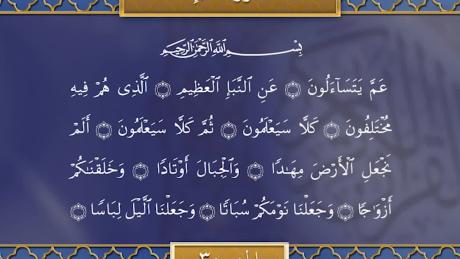 بِسْمِ اللَّهِ الرَّحْمَٰنِ الرَّحِيمِ
عَمَّ يَتَسَآءَلُونَ ۝ عَنِ النَّبَإِ الْعَظِيمِ ۝ الَّذِى هُمْ فِيهِ
مُخْتَلِفُونَ ۝ كَلَّا سَيَعْلَمُونَ ۝ ثُمَّ كَلَّا سَيَعْلَمُونَ ۝ أَلَمْ
نَجْعَلِ الْأَرْضَ مِهَٰدًا ۝ وَالْجِبَالَ أَوْتَادًا ۝ وَخَلَقْنَٰكُمْ
أَزْوَٰجًا ۝ وَجَعَلْنَا نَوْمَكُمْ سُبَاتًا ۝ وَجَعَلْنَا الَّيْلَ لِبَاسًا ۝